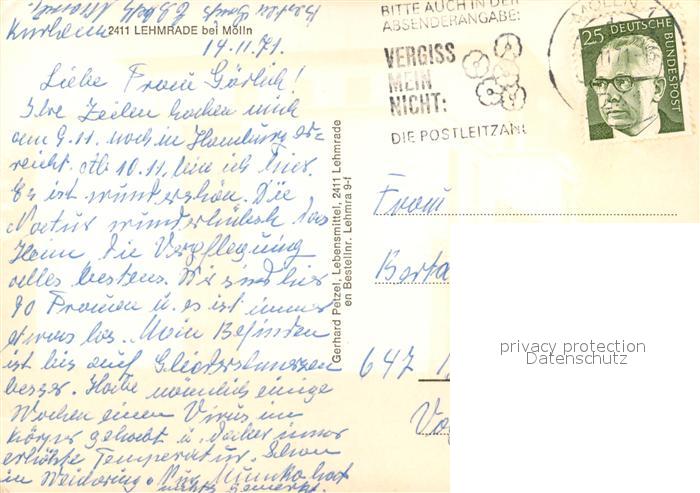 Kurheim
2411 LEHMRADE bei Mölln
14.11.71.
Liebe Frau Görlich!
Ihre Zeilen haben mich
am 9.11. noch in Hamburg er-
reicht. Ab 10.11. bin ich hier.
Es ist wunderschön. Die
Natur wunderhübsch das
Heim die Verpflegung
alles bestens. Wir sind hier
90 Frauen u. es ist immer
etwas los. Mein Befinden
ist bis auf Gliederschmerzen
besser. Habe nämlich einige
Wochen einen Virus im
Körper gehabt u. daher immer
erhöhte Temperatur. Schon
in
nichts gemerkt.
Gerhard Petzel, Lebensmittel, 2411 Lehmrade
en Bestellnr. Lehmra 9-f
BITTE AUCH IN DER
ABSENDERANGABE:
VERGISS
MEIN
NICHT:
DIE POSTLEITZAHL
MÖLLN
25
DEUTSCHE
BUNDESPOST
Frau
Berta
647
privacy protection
Datenschutz